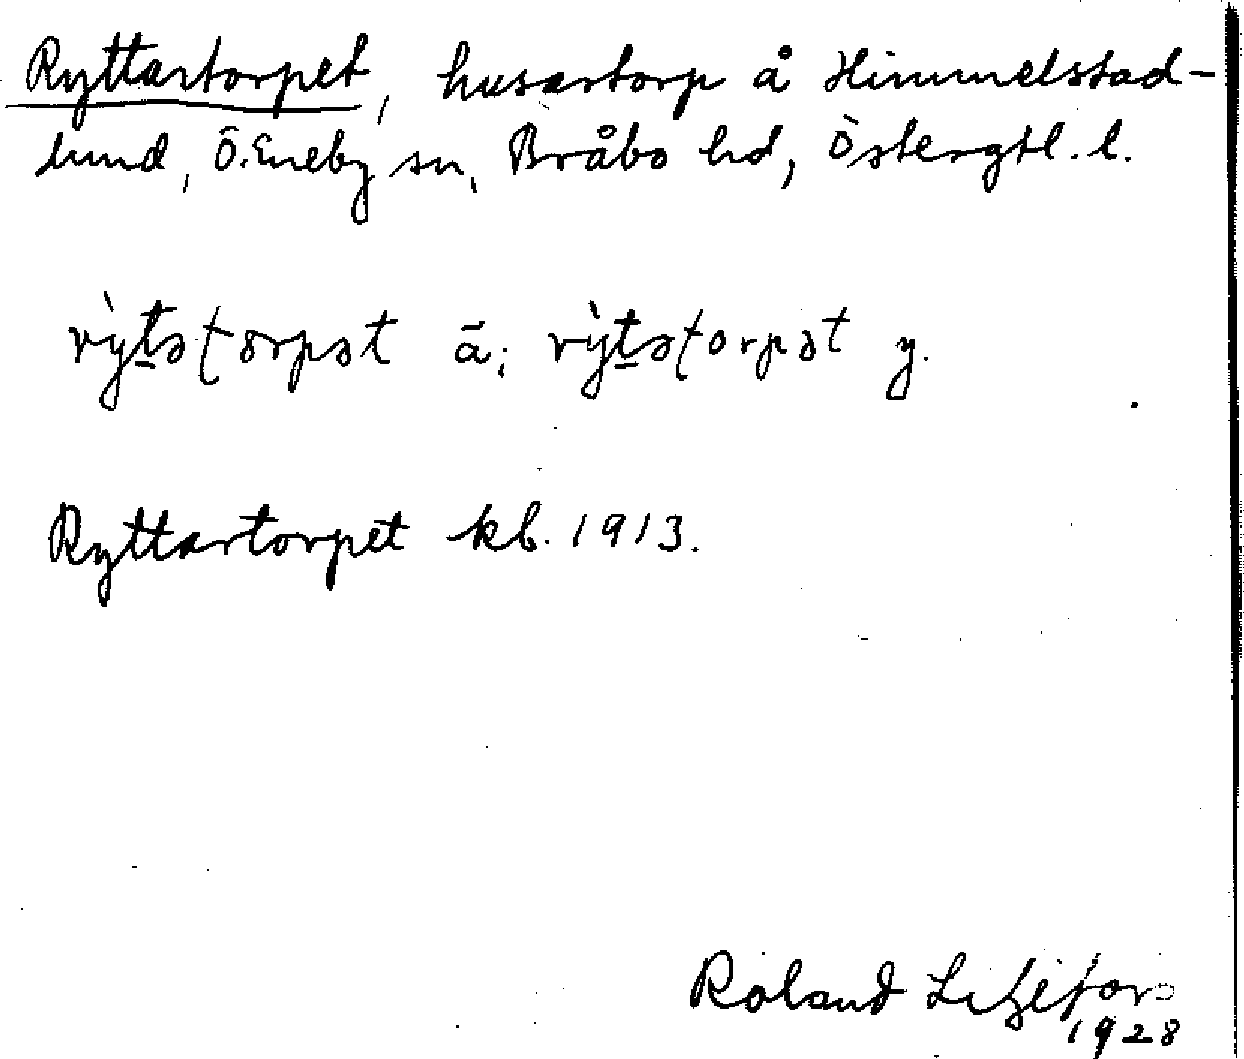 Ryttartorpet, husartorp å Himmelstad-
lund, Ö. Eneby sn, Bråbo hd, Östergtl. l.
rỳt̲əʈorpət ā; rỳt̲əʈorpət y.
Ryttartorpet kb. 1913.
Roland Liljefors
1928